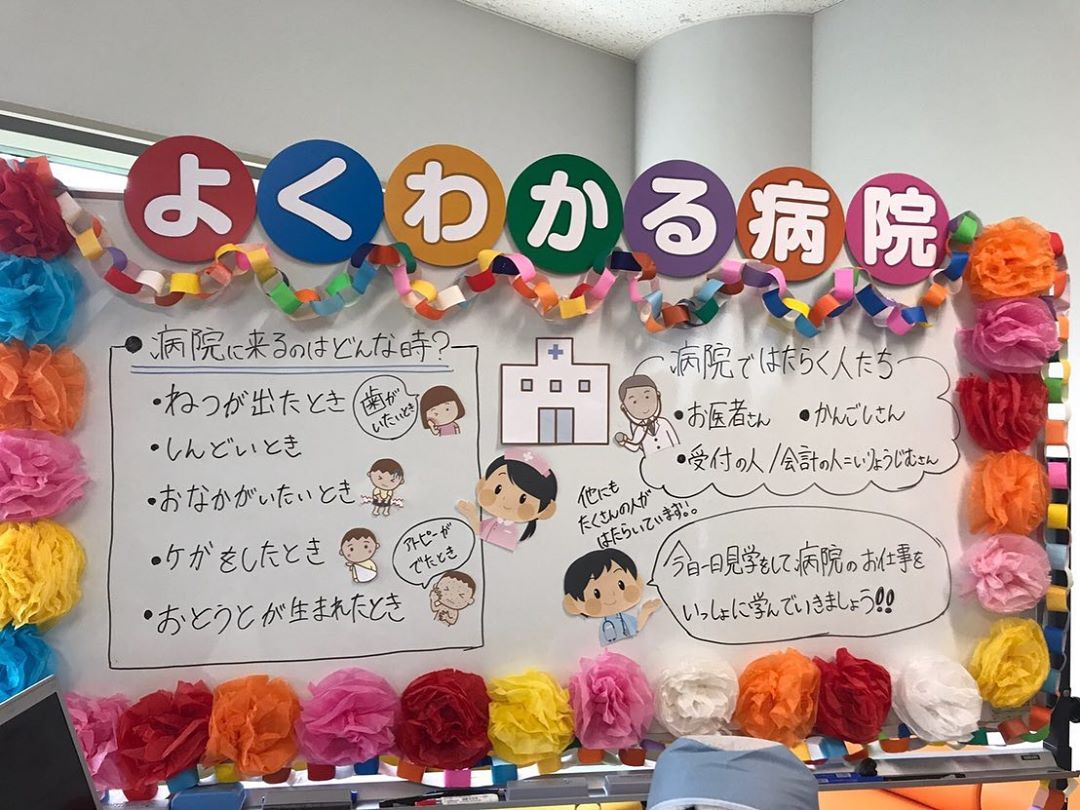 よくわかる病院
・病院に来るのはどんな時?
・ねつが出たとき
歯が
いたいとき
・しんどいとき
・おなかがいたいとき
・ケガをしたとき
アトピーが
でたとき
・おとうとが生まれたとき
病院ではたらく人たち
・お医者さん ・かんごしさん
・受付の人/会計の人=いりょうじむさん
他にも
たくさんの人が
はたらいています!。
今日一日見学をして、病院のお仕事を
いっしょに学んでいきましょう!!